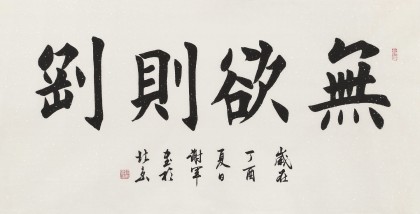 無欲則剛
歲在
丁酉
夏日
謝軍
書於
北京